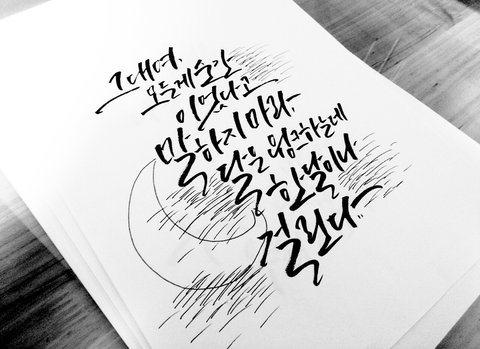 그대여,
모든게 순간
이었다고
말하지 마라,
달은 윙크하는데
한달이나
걸린다..